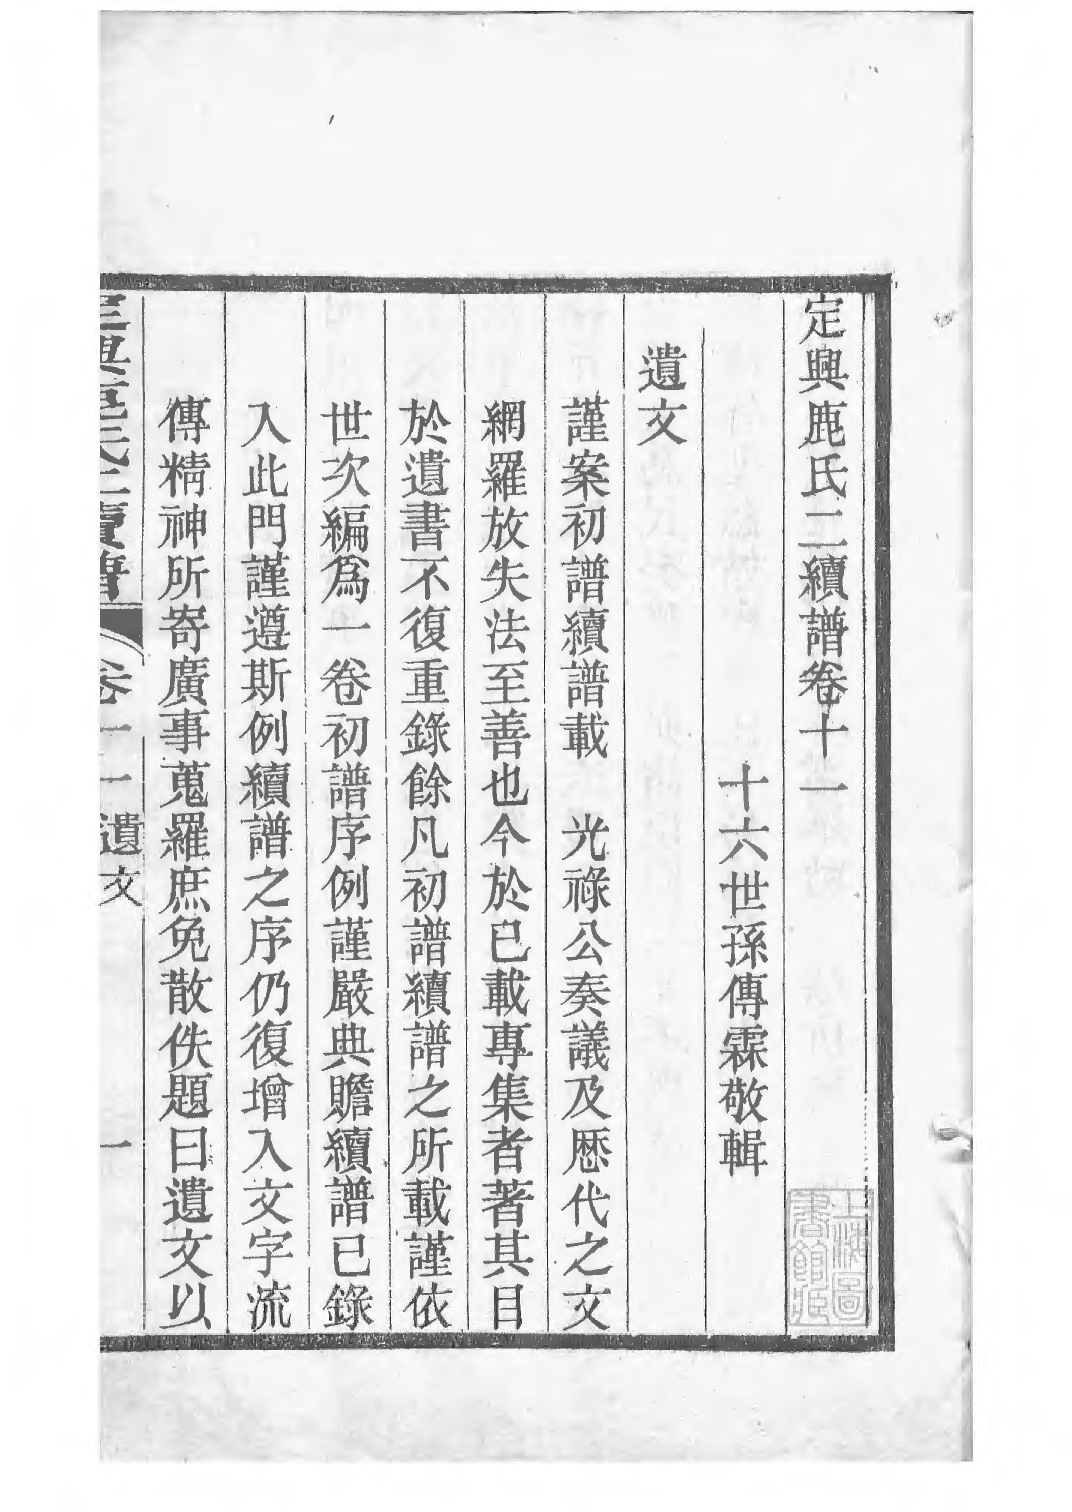 定興鹿氏二續譜卷十一
十六世孫傳霖敬輯
遺文
謹案初譜續譜載　光祿公奏議及歷代之文
網羅放失法至善也今於已載專集者著其目
於遺書不復重錄餘凡初譜續譜之所載謹依
世次編爲一卷初譜序例謹嚴典贍續譜已錄
入此門謹遵斯例續譜之序仍復增入文字流
傳精神所寄廣事蒐羅庶免散佚題曰遺文以
定興鹿氏二續譜　卷十一　遺文　一
上海圖書館藏